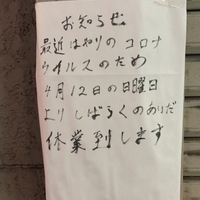 お知らせ
最近はやりのコロナ
ウイルスのため
4月12日の日曜日
よりしばらくのあいだ
休業到します